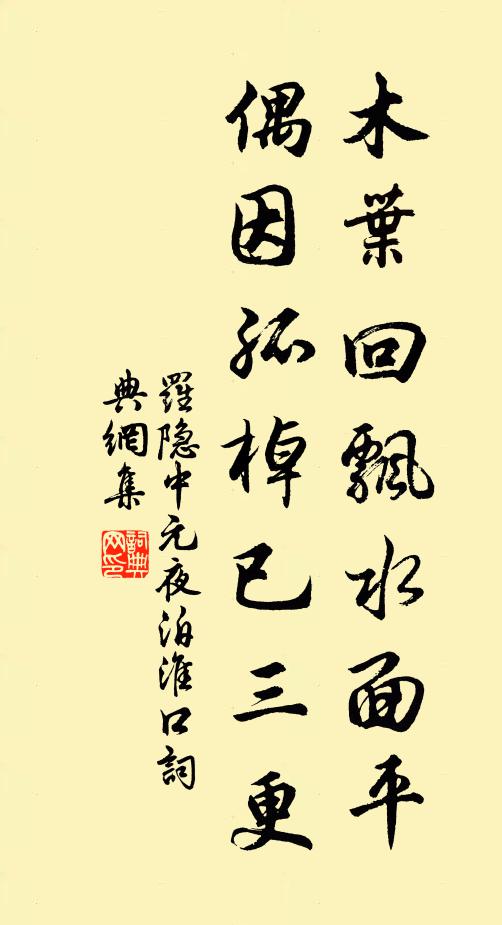 木葉回飄水面平
偶因孤棹已三更
羅隐中元夜泊淮口詞
典網集
詞典
网印